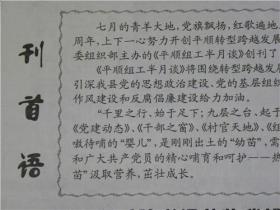 刊首语
七月的青羊大地，党旗飘扬，红歌遍地
周年，上下一心努力开创平顺转型跨越发展
委组织部主办的《平顺组工半月谈》创刊了
《平顺组工半月谈》将围绕转型跨越发展
引深我县党的思想政治建设、党的基层组织
作风建设和反腐倡廉建设给力加油。
“千里之行，始于足下；九层之台，起于
《党建动态》、《干部之窗》、《村官天地》、《红
嗷待哺的“婴儿”，是刚刚出土的“幼苗”，需
和广大共产党员的精心哺育和呵护——热
苗”汲取营养，茁壮成长。